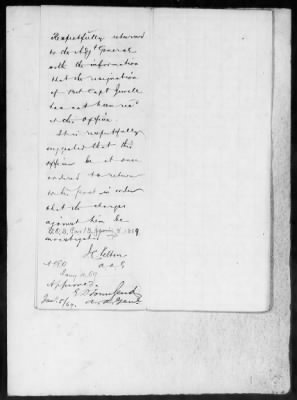 Respectfully returned
to the Adjt General
with the information
that the resignation
of Bvt Capt Jewell
has not been recd
at this Office.
It is respectfully
suggested that this
officer be at once
ordered to return
to his post in order
that the charges
against him be
investigated
J C Kelton
A A G
A G O
Jany
Approved.
E D Townsend
A. A. Genl.